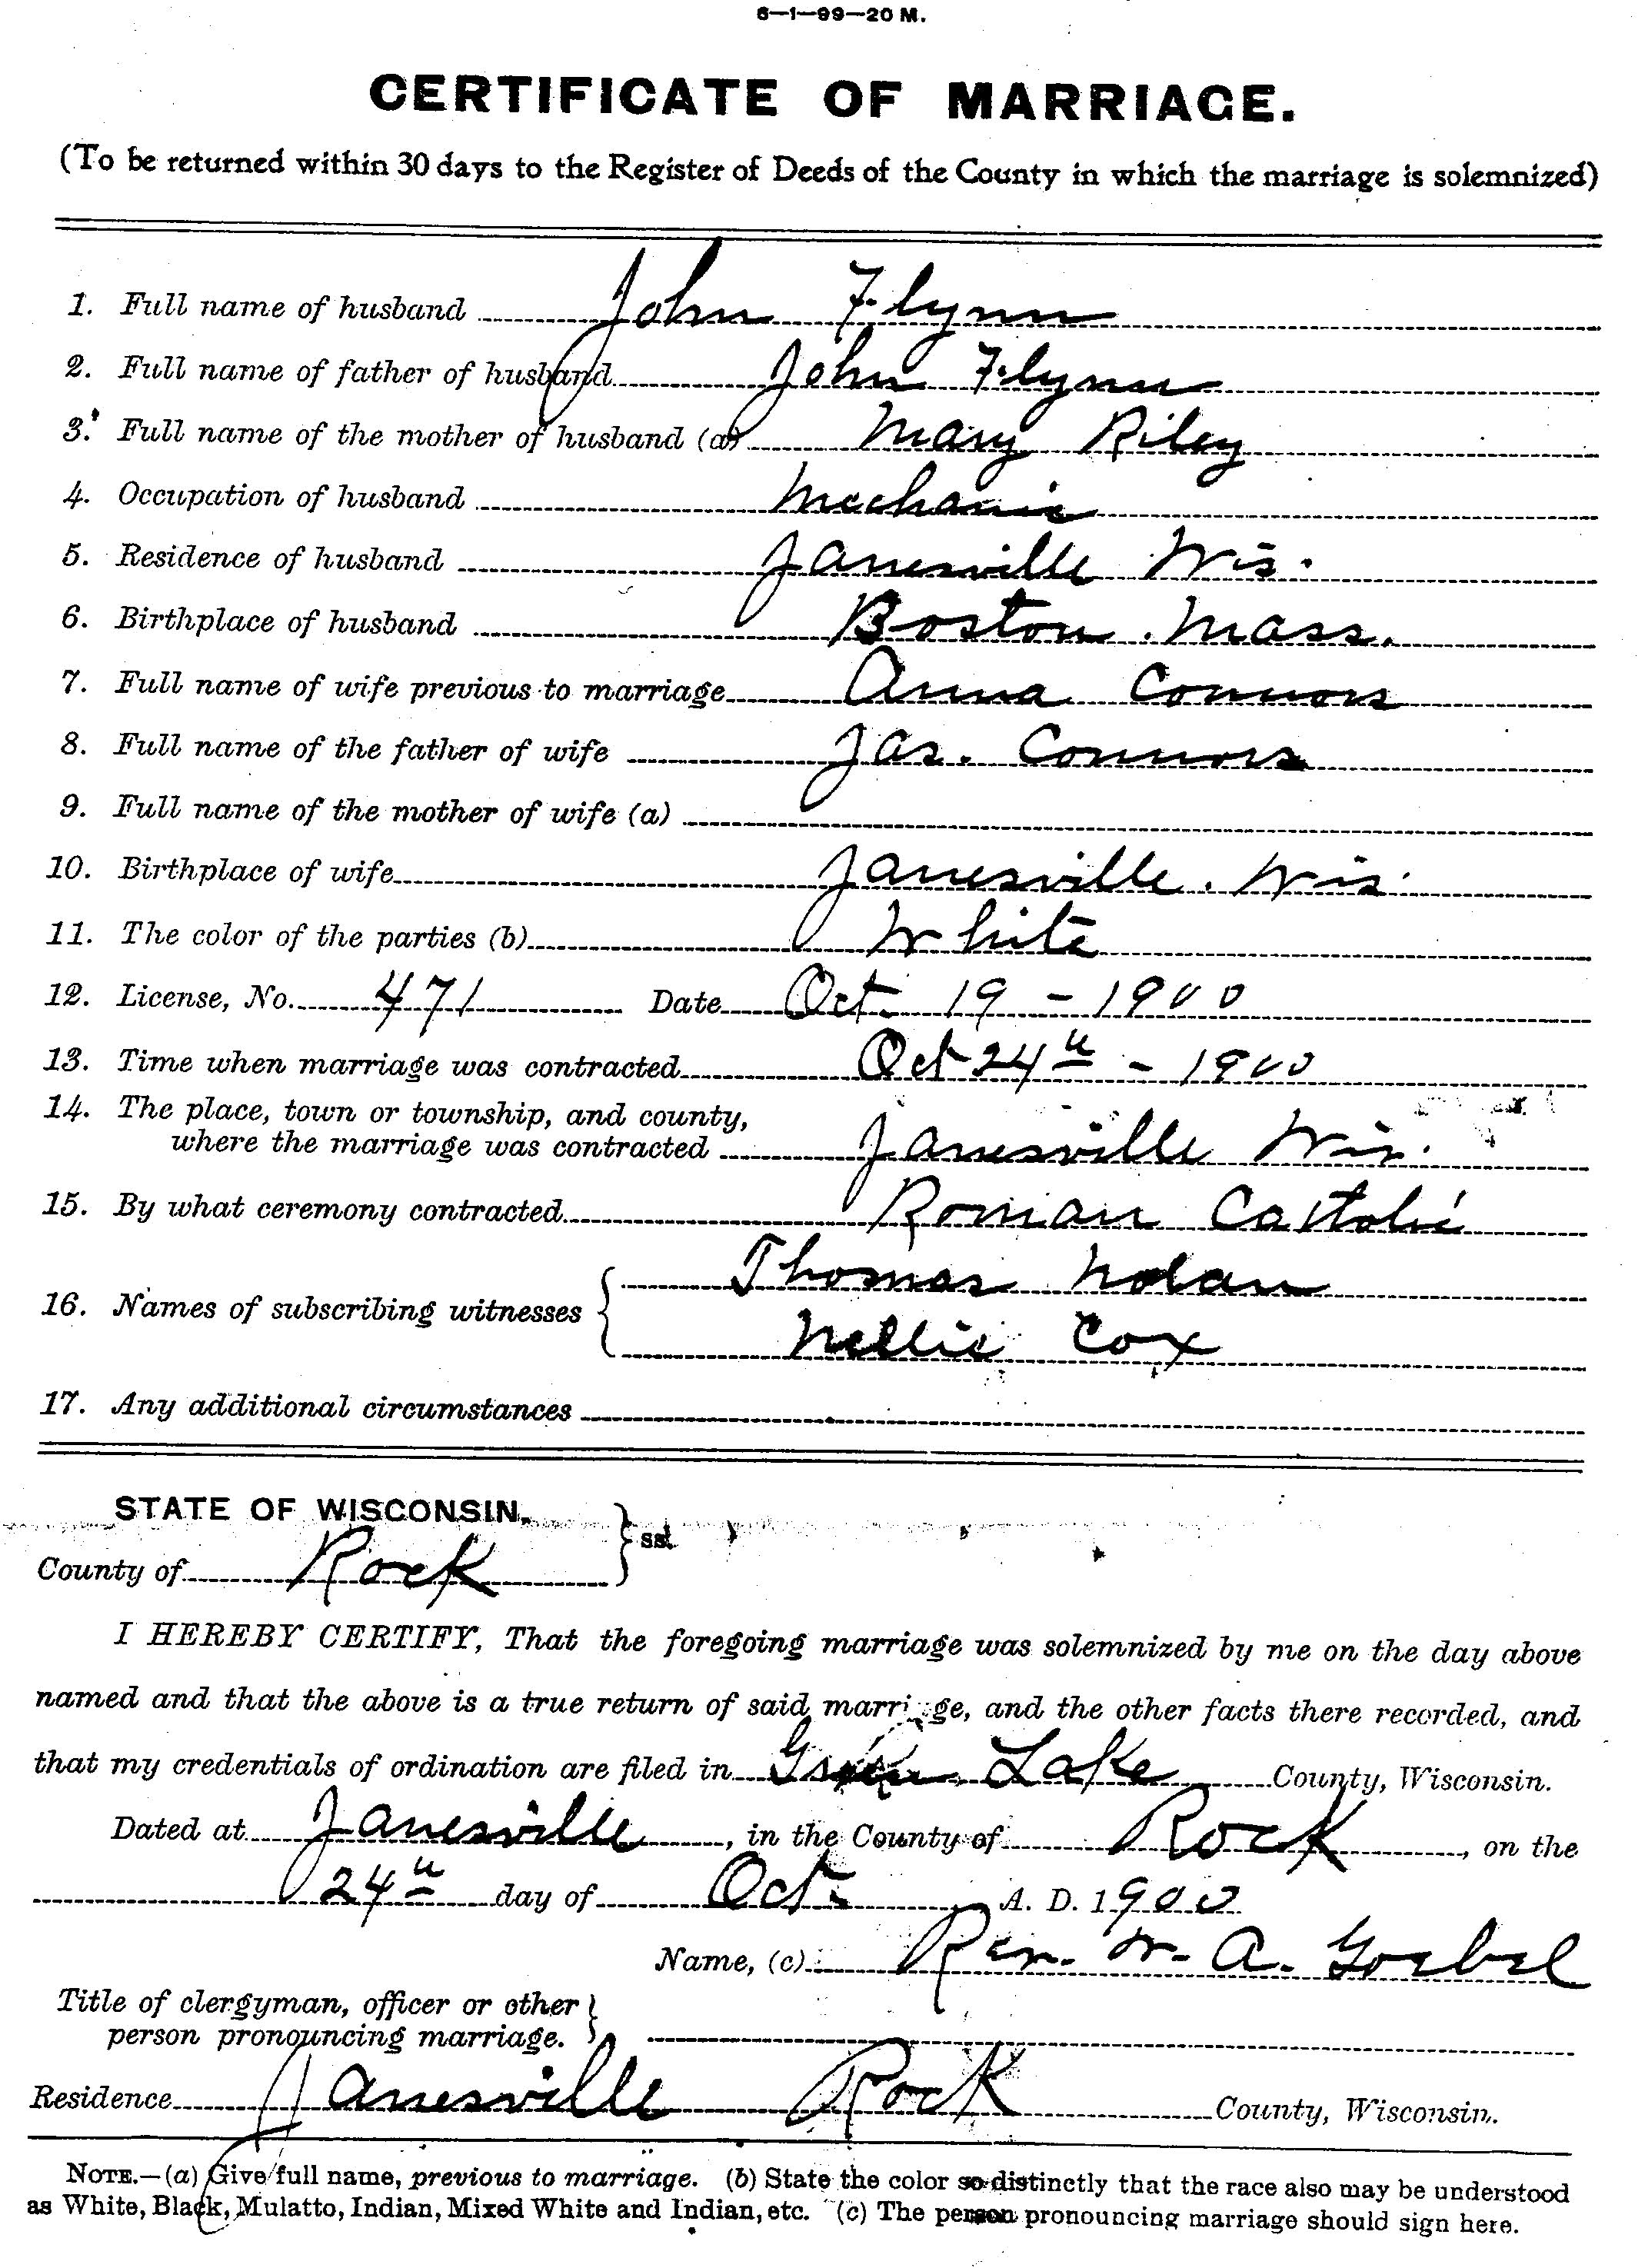 6—1—99—20 M.
CERTIFICATE OF MARRIAGE.
(To be returned within 30 days to the Register of Deeds of the County in which the marriage is solemnized)
1. Full name of husband John Flynn
2. Full name of father of husband John Flynn
3. Full name of the mother of husband (a) Mary Riley
4. Occupation of husband Mechanic
5. Residence of husband Janesville Wis.
6. Birthplace of husband Boston. Mass.
7. Full name of wife previous to marriage Anna Connors
8. Full name of the father of wife Jas. Connors
9. Full name of the mother of wife (a)
10. Birthplace of wife Janesville. Wis.
11. The color of the parties (b) White
12. License, No. 471 Date Oct. 19 - 1900
13. Time when marriage was contracted Oct 24th - 1900
14. The place, town or township, and county,
where the marriage was contracted Janesville Wis.
15. By what ceremony contracted Roman Catholic
Thomas Nolan
16. Names of subscribing witnesses
Nellie Cox
17. Any additional circumstances
STATE OF WISCONSIN, } ss.
County of Rock
I HEREBY CERTIFY, That the foregoing marriage was solemnized by me on the day above
named and that the above is a true return of said marriage, and the other facts there recorded, and
that my credentials of ordination are filed in Green Lake County, Wisconsin.
Dated at Janesville, in the County of Rock, on the
24th day of Oct. A. D. 1900
Name, (c) Rev. W. A. Goebel
Title of clergyman, officer or other
person pronouncing marriage.
Residence Janesville Rock County, Wisconsin.
NOTE.—(a) Give full name, previous to marriage. (b) State the color so distinctly that the race also may be understood
as White, Black, Mulatto, Indian, Mixed White and Indian, etc. (c) The person pronouncing marriage should sign here.